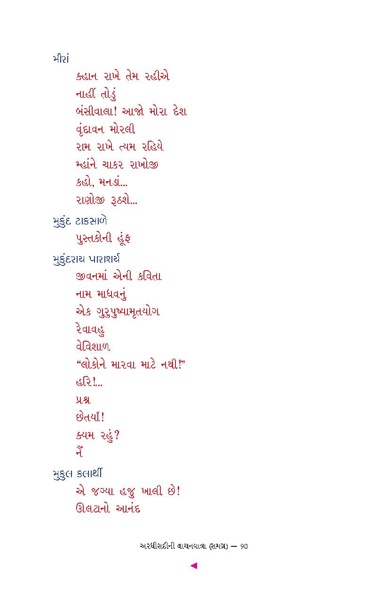 મીરાં
ક્હાન રાખે તેમ રહીએ
નાહીં તોડું
બંસીવાલા! આજો મોરા દેશ
વૃંદાવન મોરલી
રામ રાખે ત્યમ રહિયે
મ્હાંને ચાકર રાખોજી
કહો, મનડાં...
રાણોજી રૂઠશે...
મુકુંદ ટાકસાળે
પુસ્તકોની હૂંફ
મુકુંદરાય પારાશર્ય
જીવનમાં એની કવિતા
નામ માધવનું
એક ગુરુપુષ્યામૃતયોગ
રેવાવહુ
વેવિશાળ
“લોકોને મારવા માટે નથી!”
હરિ!...
પ્રશ્ન
છેતર્યાં!
ક્યમ રહું?
નૈં
મુકુલ કલાર્થી
એ જગ્યા હજુ ખાલી છે!
ઊલટાનો આનંદ
અરધીસદીની વાચનયાત્રા (સમગ્ર) — 90